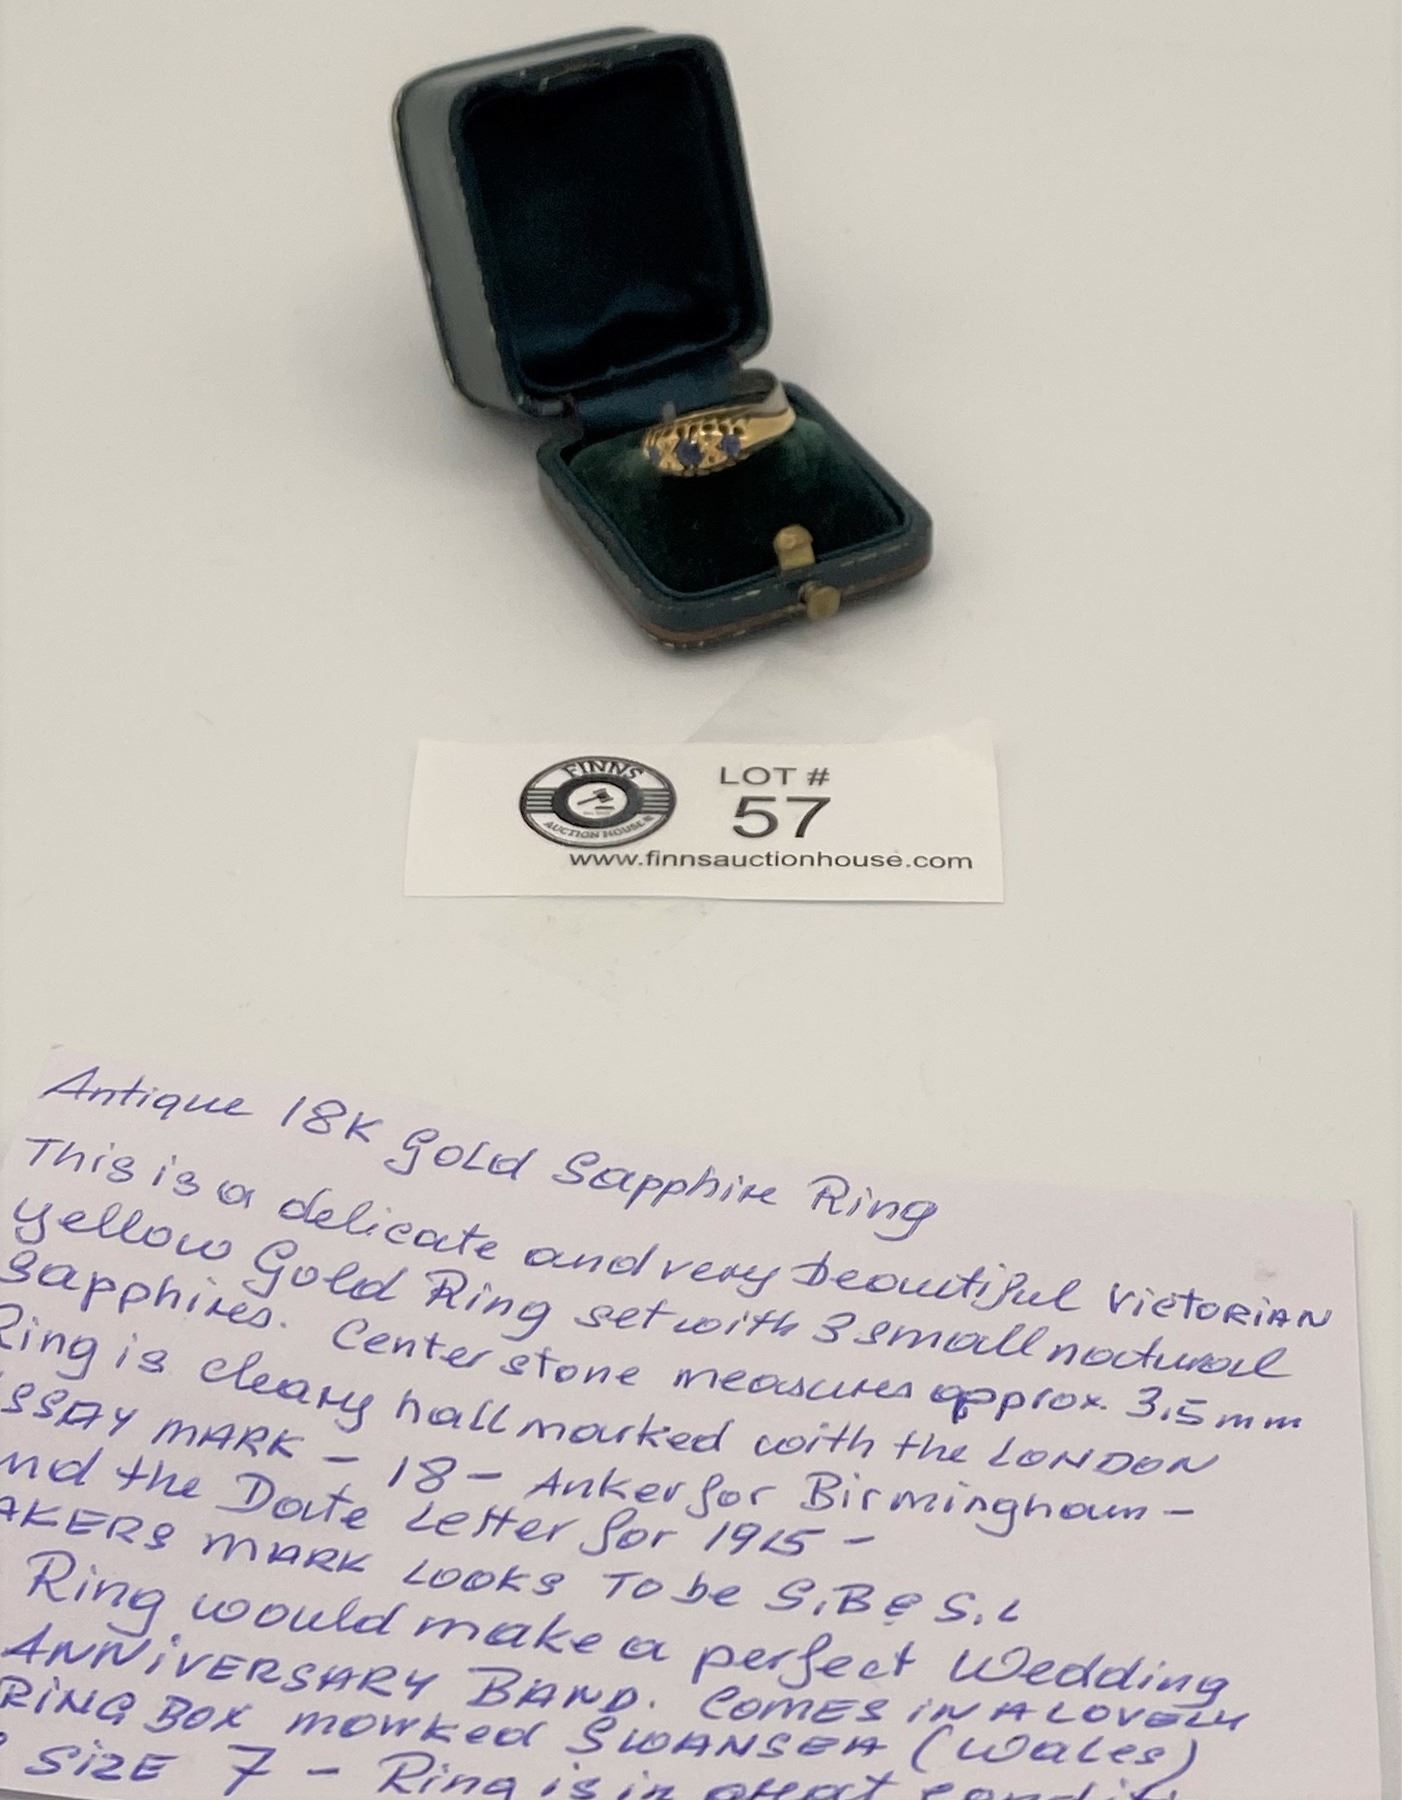 FINNS
AUCTION HOUSE
LOT #
57
www.finnsauctionhouse.com
Antique 18K Gold Sapphire Ring
This is a delicate and very beautiful VICTORIAN
yellow Gold Ring set with 3 small natural
Sapphires. Center stone measures approx. 3,5 mm
Ring is cleary hallmarked with the LONDON
SSAY MARK - 18 - Anker for Birmingham -
nd the Date Letter for 1915 -
AKERS MARK LOOKS TO be S.B & S.L
Ring would make a perfect Wedding
ANNIVERSARY BAND. COMES IN A LOVELY
RING BOX marked SWANSEA (Wales)
SIZE 7 - Ring is in great